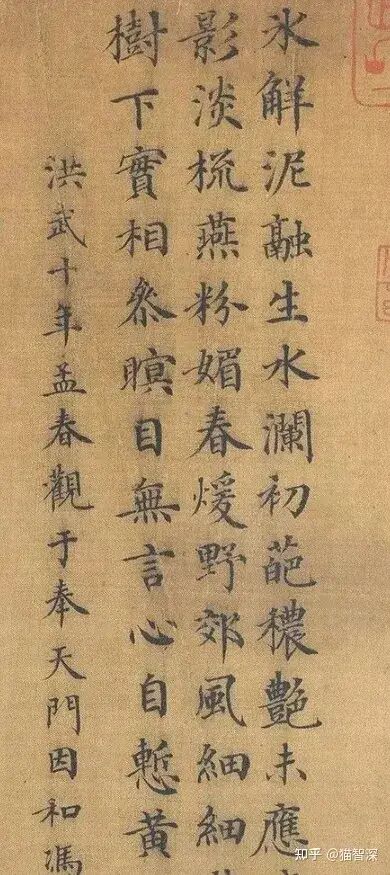 氷觧泥融生水瀾初葩穠艷未應
影淡梳燕粉媚春煖野郊風細細
樹下實相叅瞑目無言心自慙黃
洪武十年孟春觀于奉天門因和馮
知乎 @猫智深